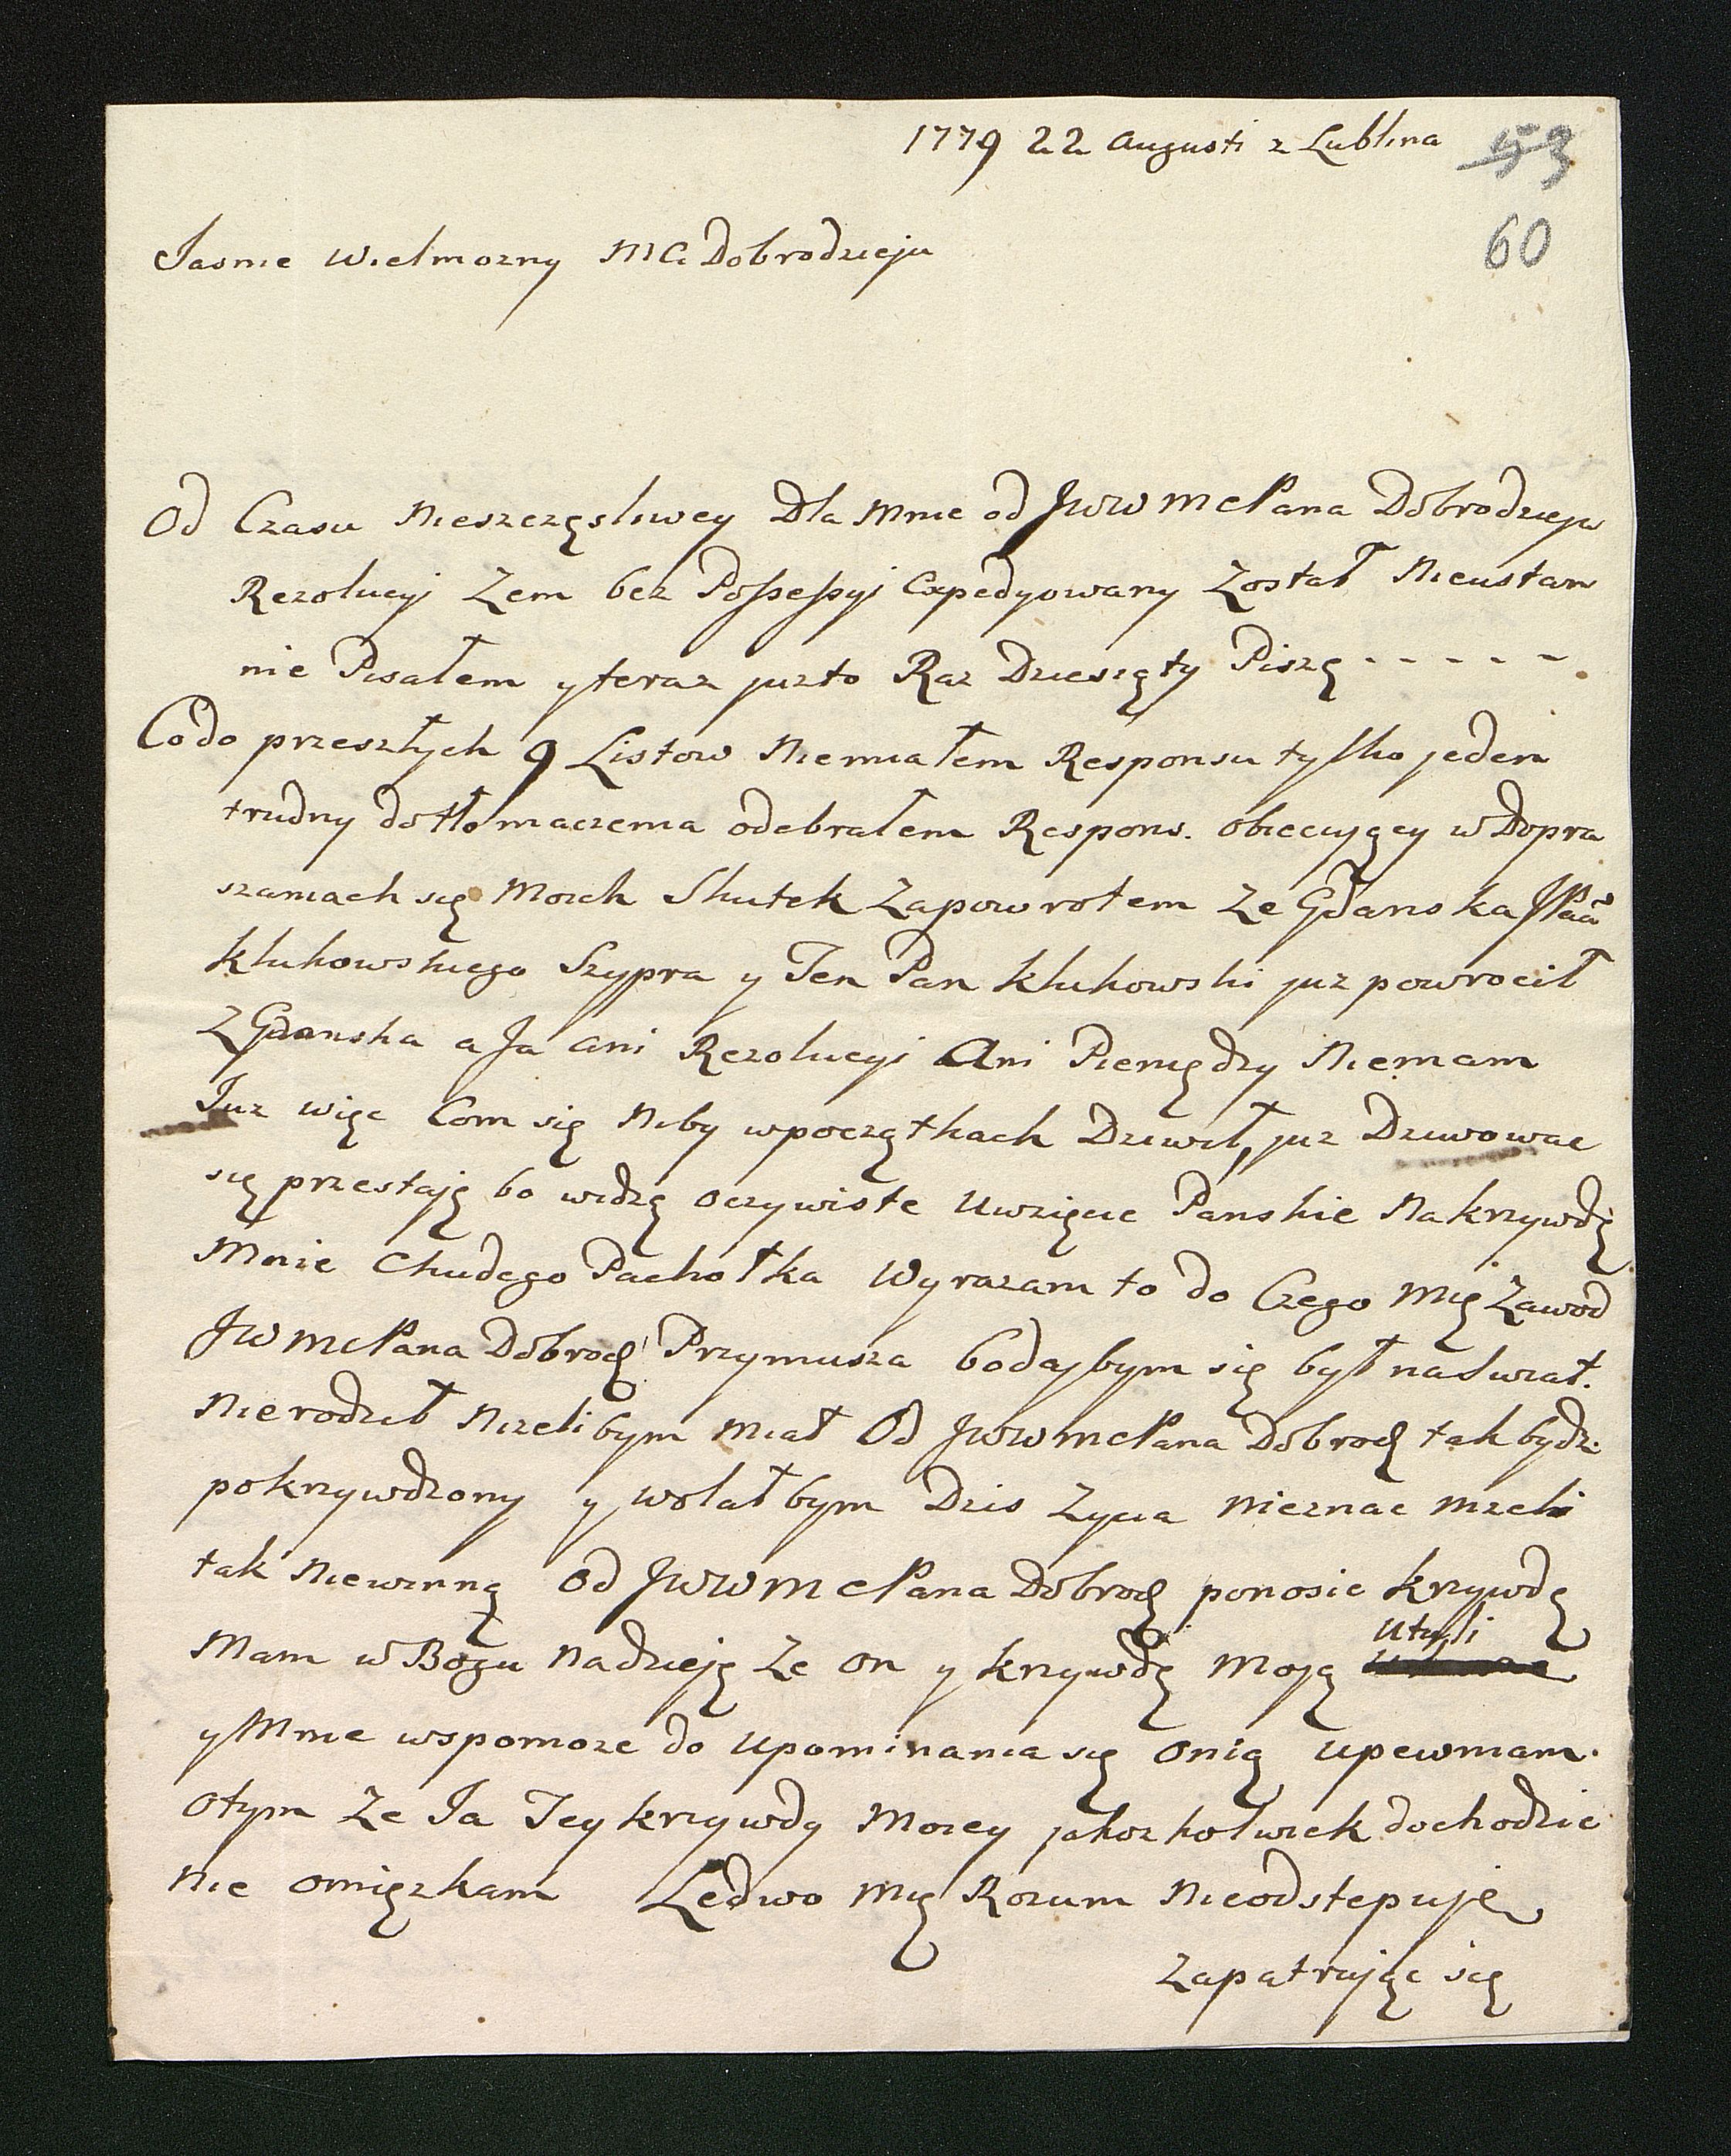 1779 22 Augusti z Lublina
53
60
Jasnie Wielmozny MC Dobrodzieju
Od Czasu Nieszczęsliwey Dla Mnie od JWWMCPana Dobrodzieja
Rezolucyi Zem bez Possessyi Expedyowany Został Nieustan
nie Pisałem y teraz juz to Raz Dziesięty Piszę - - - - - -
Co do przeszłych 9 Listow Niemiałem Responsu tylko jeden
trudny do tłomaczenia odebrałem Respons. obiecuyący w Dopra
szaniach się Moich Skutek Zapowrotem Ze Gdanska JPaa
Klukowskiego Szypra y Ten Pan Klukowski juz powrocił
Z Gdanska a Ja ani Rezolucyi Ani Pieniędzy Niemam
Juz więc Com się Niby w początkach Dziwił, juz Dziwowac
się przestaję bo widzę oczywiste Uwzięcie Panskie Na krzywdę
Mnie Chudego Pachołka Wyrazam to do Czego Mię Zawod
JWMCPana Dobrodz Przymusza bodaybym się był na Swiat.
Nierodził Nizeli bym Miał Od JWWMCPana Dobrodz tak bydz
pokrzywdzony y wolałbym Dzis Zycia nieznac nizeli
tak Niewinną Od JWWMCPana Dobrodz ponosic krzywdę
Utuli
Mam w Bogu nadzieję Ze on y krzywdę Moję
y Mnie wspomoze do Upominania się Onię Upewniam.
Otym Ze Ja Tey krzywdy Moiey jakozkolwiek dochodzic
Nie omięzkam Ledwo Mię Rozum Nieodstepuje
Zapatrując się